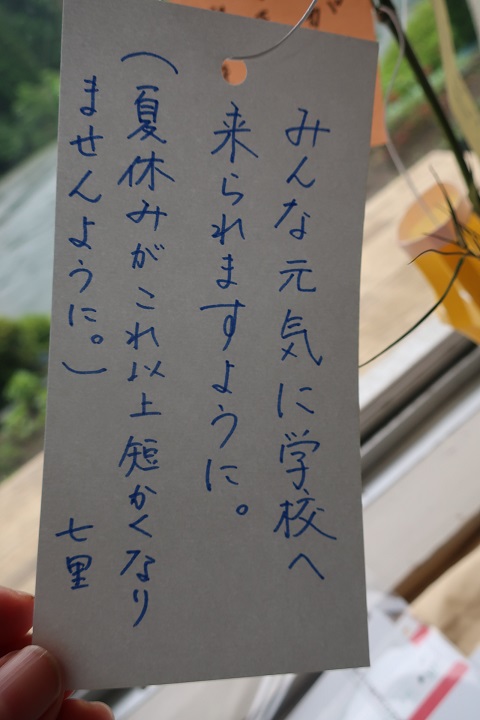 みんな元気に学校へ
来られますように。
（夏休みがこれ以上短かくなり
ませんように。）
七里